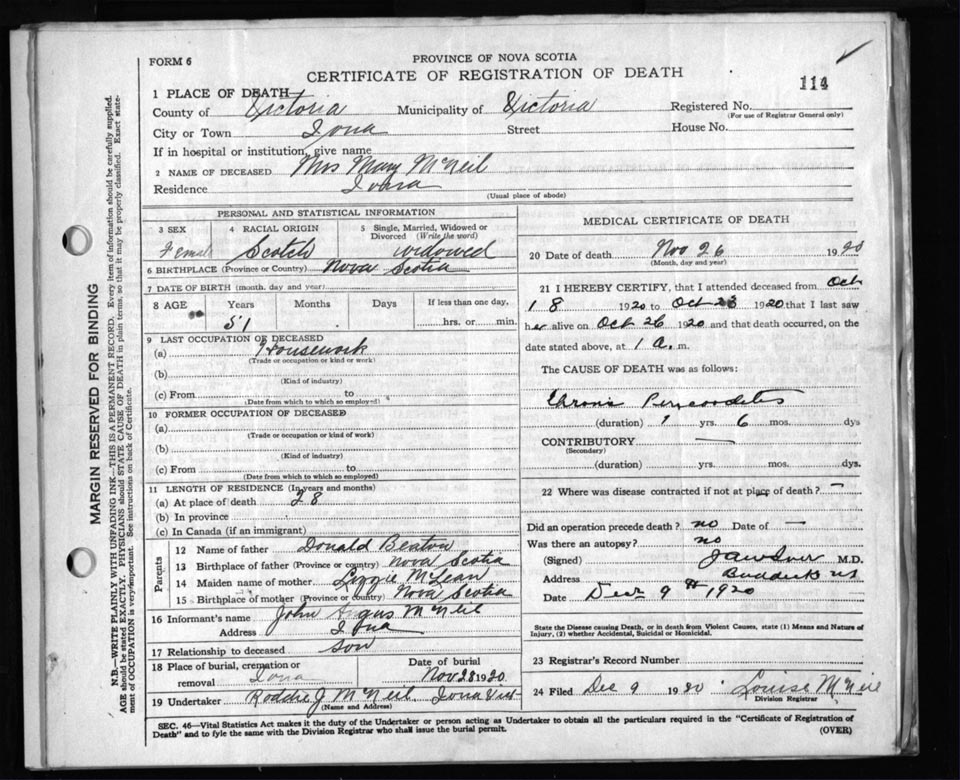 FORM 6
PROVINCE OF NOVA SCOTIA
CERTIFICATE OF REGISTRATION OF DEATH
114
1 PLACE OF DEATH
County of Victoria Municipality of Victoria Registered No.
(For use of Registrar General only)
City or Town Iona Street House No.
If in hospital or institution, give name
2 NAME OF DECEASED Mrs Mary McNeil
Residence Iona
(Usual place of abode)
PERSONAL AND STATISTICAL INFORMATION
3 SEX 4 RACIAL ORIGIN 5 Single, Married, Widowed or
Divorced (Write the word)
Female Scotch widowed
6 BIRTHPLACE (Province or Country) Nova Scotia
7 DATE OF BIRTH (month, day and year)
8 AGE Years Months Days If less than one day,
51 hrs. or min.
9 LAST OCCUPATION OF DECEASED
(a) Housework
(Trade or occupation or kind of work)
(b)
(Kind of industry)
(c) From to
(Date from which to which so employed)
10 FORMER OCCUPATION OF DECEASED
(a)
(Trade or occupation or kind of work)
(b)
(Kind of industry)
(c) From to
(Date from which to which so employed)
11 LENGTH OF RESIDENCE (In years and months)
(a) At place of death 28
(b) In province
(c) In Canada (if an immigrant)
Parents
12 Name of father Donald Beaton
13 Birthplace of father (Province or country) Nova Scotia
14 Maiden name of mother Lizzie McLean
15 Birthplace of mother (Province or country) Nova Scotia
16 Informant's name John Angus McNeil
Address Iona
17 Relationship to deceased son
18 Place of burial, cremation or
removal Iona
Date of burial
Nov 28 1920
19 Undertaker Roddie J McNeil, Iona Vict
(Name and Address)
MEDICAL CERTIFICATE OF DEATH
20 Date of death Nov 26 1920
(Month, day and year)
21 I HEREBY CERTIFY, that I attended deceased from Oct
18 1920 to Oct 1920 that I last saw
her alive on Oct 26 1920 and that death occurred, on the
date stated above, at 1 a. m.
The CAUSE OF DEATH was as follows:
(duration) 1 yrs. 6 mos. dys
CONTRIBUTORY —
(Secondary)
(duration) yrs. mos. dys.
22 Where was disease contracted if not at place of death? —
Did an operation precede death? no Date of —
Was there an autopsy? no
(Signed) M.D.
Address Baddeck NS
Date Dec 9th 1920
State the Disease causing Death, or in death from Violent Causes, state (1) Means and Nature of
Injury, (2) whether Accidental, Suicidal or Homicidal.
23 Registrar's Record Number
24 Filed Dec 9 1920 Louise McNeil
Division Registrar
SEC. 46—Vital Statistics Act makes it the duty of the Undertaker or person acting as Undertaker to obtain all the particulars required in the "Certificate of Registration of
Death" and to fyle the same with the Division Registrar who shall issue the burial permit. (OVER)
MARGIN RESERVED FOR BINDING
N.B.—WRITE PLAINLY WITH UNFADING INK—THIS IS A PERMANENT RECORD. Every item of information should be carefully supplied.
AGE should be stated EXACTLY. PHYSICIANS should STATE CAUSE OF DEATH in plain terms, so that it may be properly classified. Exact state-
ment of OCCUPATION is very important. See instructions on back of Certificate.